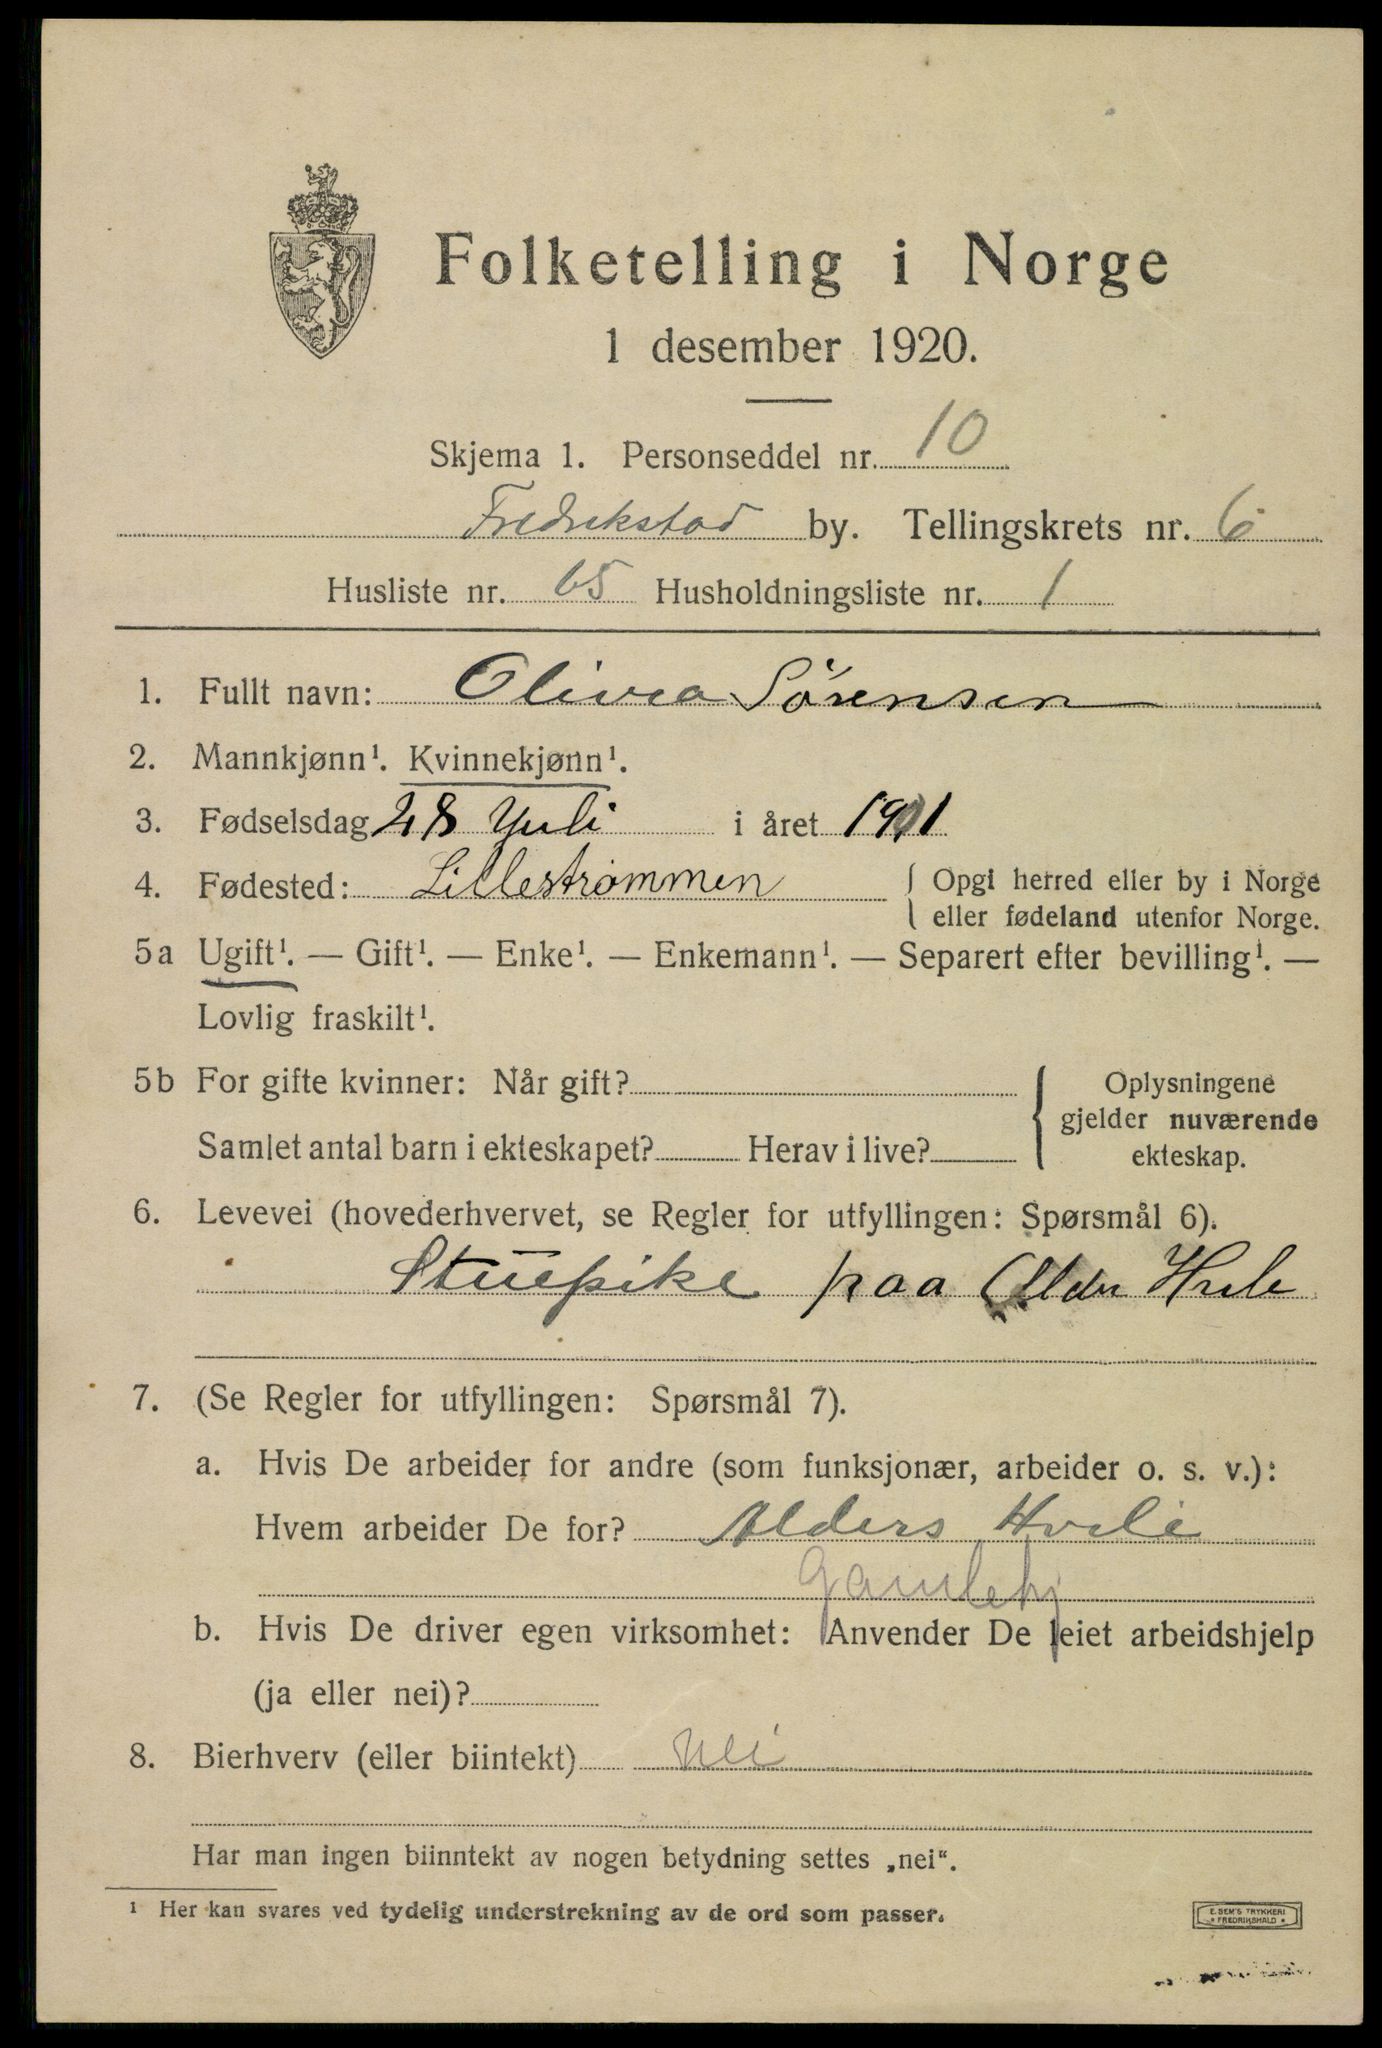 Folketelling i Norge
1 desember 1920.
Skjema 1. Personseddel nr. 10
Fredrikstad by. Tellingskrets nr. 6
Husliste nr. 65 Husholdningsliste nr. 1
1. Fullt navn: Olivea Sørensen
2. Mannkjønn¹. Kvinnekjønn¹.
3. Fødselsdag 28 Yuli i året 1901
4. Fødested: Lillestrømmen { Opgi herred eller by i Norge
eller fødeland utenfor Norge.
5a Ugift¹. — Gift¹. — Enke¹. — Enkemann¹. — Separert efter bevilling¹. —
Lovlig fraskilt¹.
5b For gifte kvinner: Når gift? { Oplysningene
gjelder nuværende
Samlet antal barn i ekteskapet? Herav i live? ekteskap.
6. Levevei (hovederhvervet, se Regler for utfyllingen: Spørsmål 6).
Stuepike paa Alder Hvile
7. (Se Regler for utfyllingen: Spørsmål 7).
a. Hvis De arbeider for andre (som funksjonær, arbeider o. s. v.):
Hvem arbeider De for? Alders Hvile
Gamlehj
b. Hvis De driver egen virksomhet: Anvender De leiet arbeidshjelp
(ja eller nei)?
8. Bierhverv (eller biintekt) Nei
Har man ingen biinntekt av nogen betydning settes „nei“.
¹ Her kan svares ved tydelig understrekning av de ord som passer.
E. SEM'S TRYKKERI
* FREDRIKSHALD *